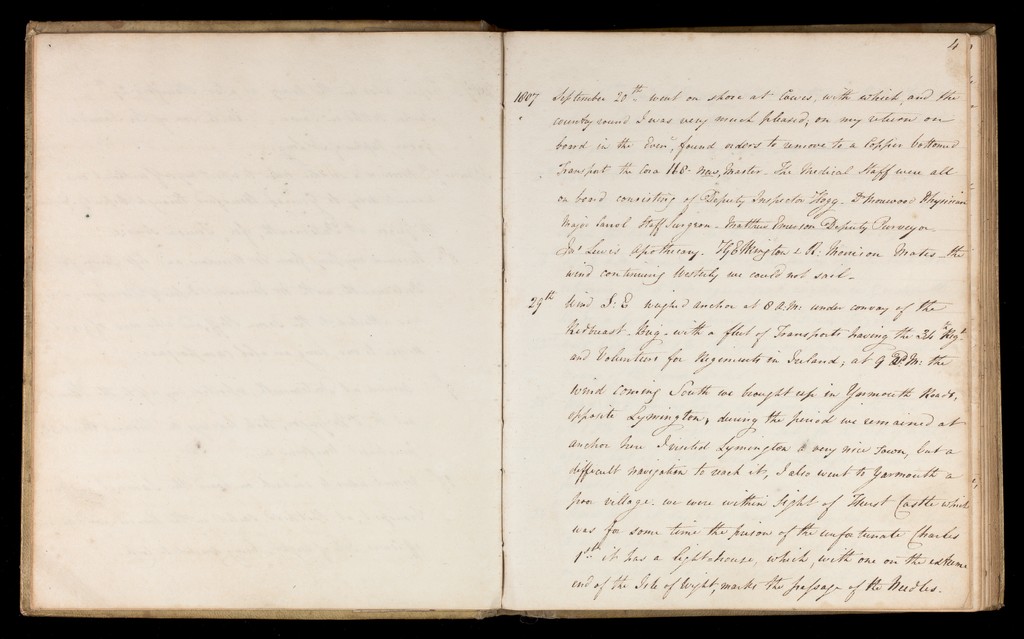 4
1807 September 20th went on shore at Cowes, with which, and the
country round I was very much pleased; on my return on
board in the Eveng, found orders to remove to a Copper bottomed
Transport the Cora Master - The Medical Staff were all
on board consisting of Deputy Inspector Hogg - Dr Physician
Major Staff Surgeon - Matthew Emerson Deputy Purveyor
Lewis Apothecary. HG Elkington & R: Morrison Mates - the
wind continuing Westerly we could not sail -
29th Wind S: E weighed anchor at 8 A.M: under convoy of the
Redbreast - Brig - with a fleet of Transports having the 34th Regt
and Volunteers for Regiments in Ireland, at 9 P.M: the
wind coming South we brought up in Yarmouth Roads,
opposite Lymington, during the period we remained at
anchor here I visited Lymington a very nice town, but a
difficult navigation to reach it, I also went to Yarmouth a
poor village. we were within sight of Hurst Castle which
was for some time the prison of the unfortunate Charles
1st it has a lighthouse, which, with one on the extreme
end of the Isle of Wight, marks the passage of the Needles.